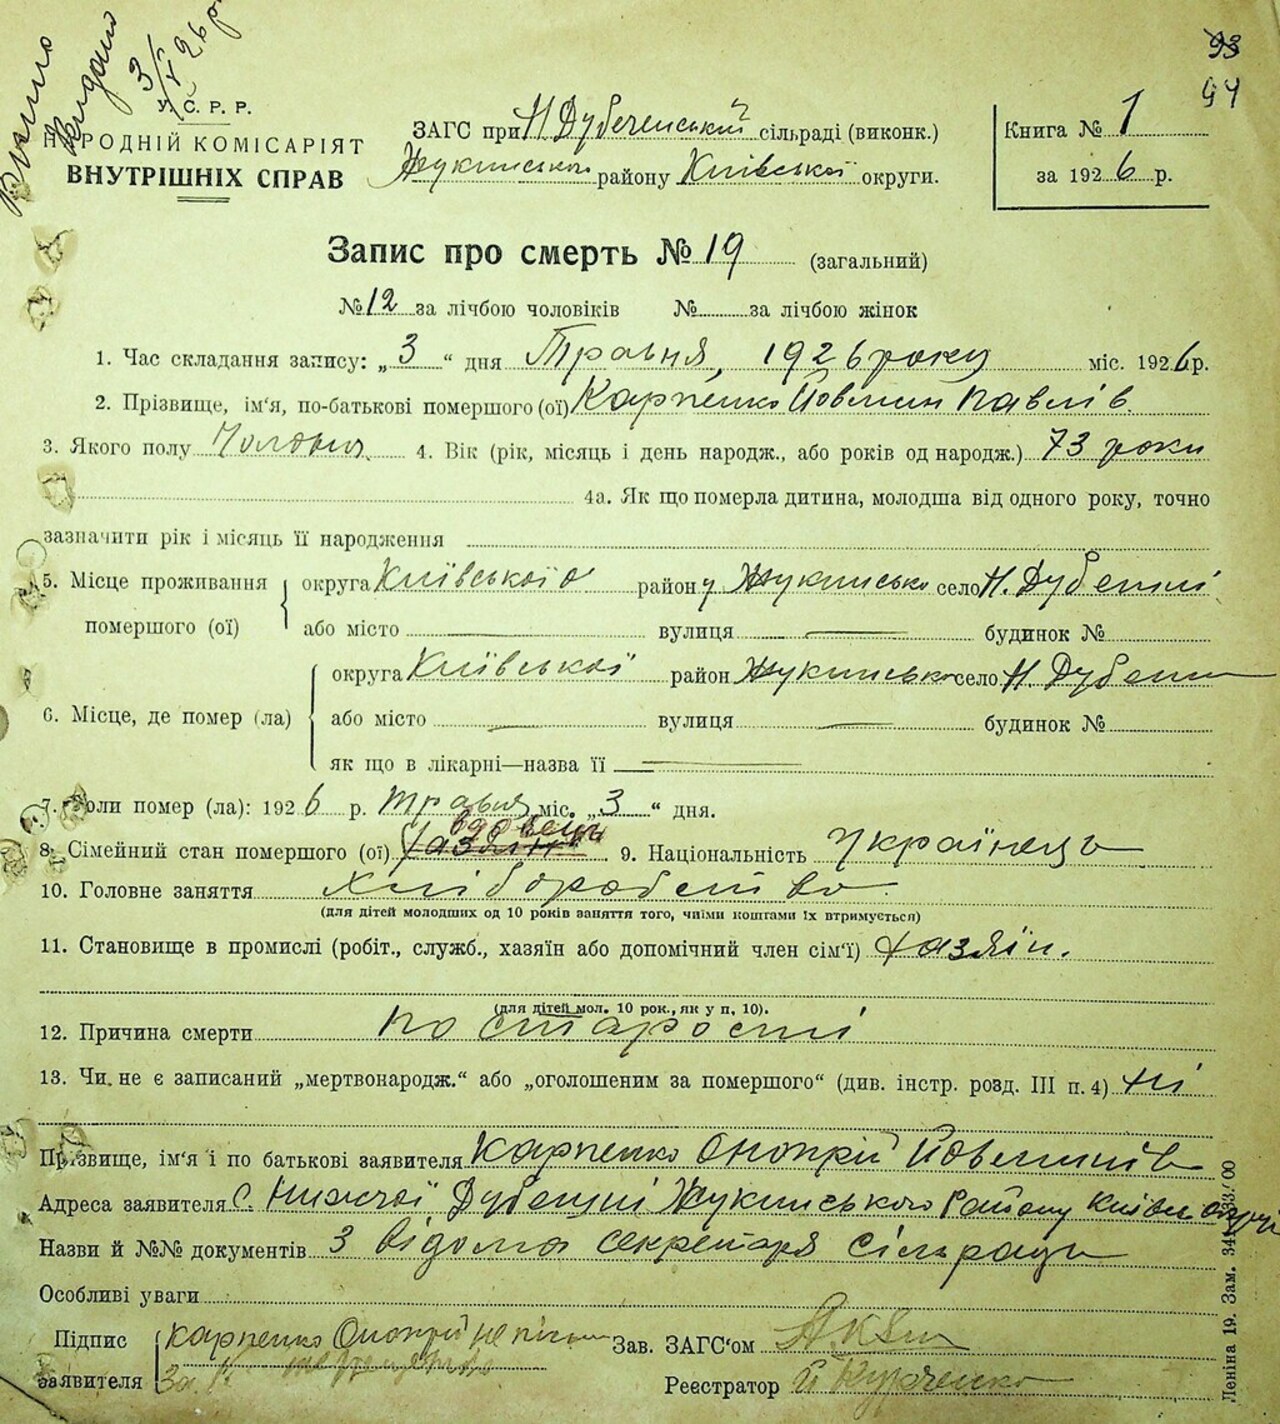 93
94
Видано
3/V 26 р.
У. С. Р. Р.
НАРОДНІЙ КОМІСАРІЯТ
ВНУТРІШНІХ СПРАВ
ЗАГС при Н Дубеченській сільраді (виконк.)
Жукинського району Київської округи.
Книга № 1
за 1926 р.
Запис про смерть № 19 (загальний)
№ 12 за лічбою чоловіків № за лічбою жінок
1. Час складання запису: „3“ дня Травня, 1926 року міс. 1926 р.
2. Прізвище, ім‘я, по-батькові помершого (ої) Карпенко Йовмин Павлів.
3. Якого полу Чоловіч. 4. Вік (рік, місяць і день народж., або років од народж.) 73 роки
4а. Як що померла дитина, молодша від одного року, точно
зазначити рік і місяць її народження
5. Місце проживання помершого (ої) округа Київської район у Жукинсько село Н. Дубечні
або місто вулиця будинок №
6. Місце, де помер (ла) округа Київської район Жукинсько село Н. Дубечні
або місто вулиця будинок №
як що в лікарні—назва її
7. Коли помер (ла): 1926 р. Травня міс. „3“ дня.
8. Сімейний стан помершого (ої) Хазяїн вдовець 9. Національність Українець
10. Головне заняття хліборобство
(для дітей молодших од 10 років заняття того, чиїми коштами їх втримується)
11. Становище в промислі (робіт., служб., хазяїн або допомічний член сім‘ї) Хазяїн.
(для дітей мол. 10 рок., як у п, 10).
12. Причина смерти по старості
13. Чи не є записаний „мертвонародж.“ або „оголошеним за помершого“ (див. інстр. розд. III п. 4) Ні
Прізвище, ім‘я і по батькові заявителя Карпенко Онопрій Йовминів
Адреса заявителя С. Нижчої Дубечні Жукинського Району Київс округи
Назви й №№ документів З відома секретаря сільради
Особливі уваги
Підпис заявителя Карпенко Онопрій не письм
За
Зав. ЗАГС‘ом
Реєстратор Й Курченко
Леніна 19. Зам. 341